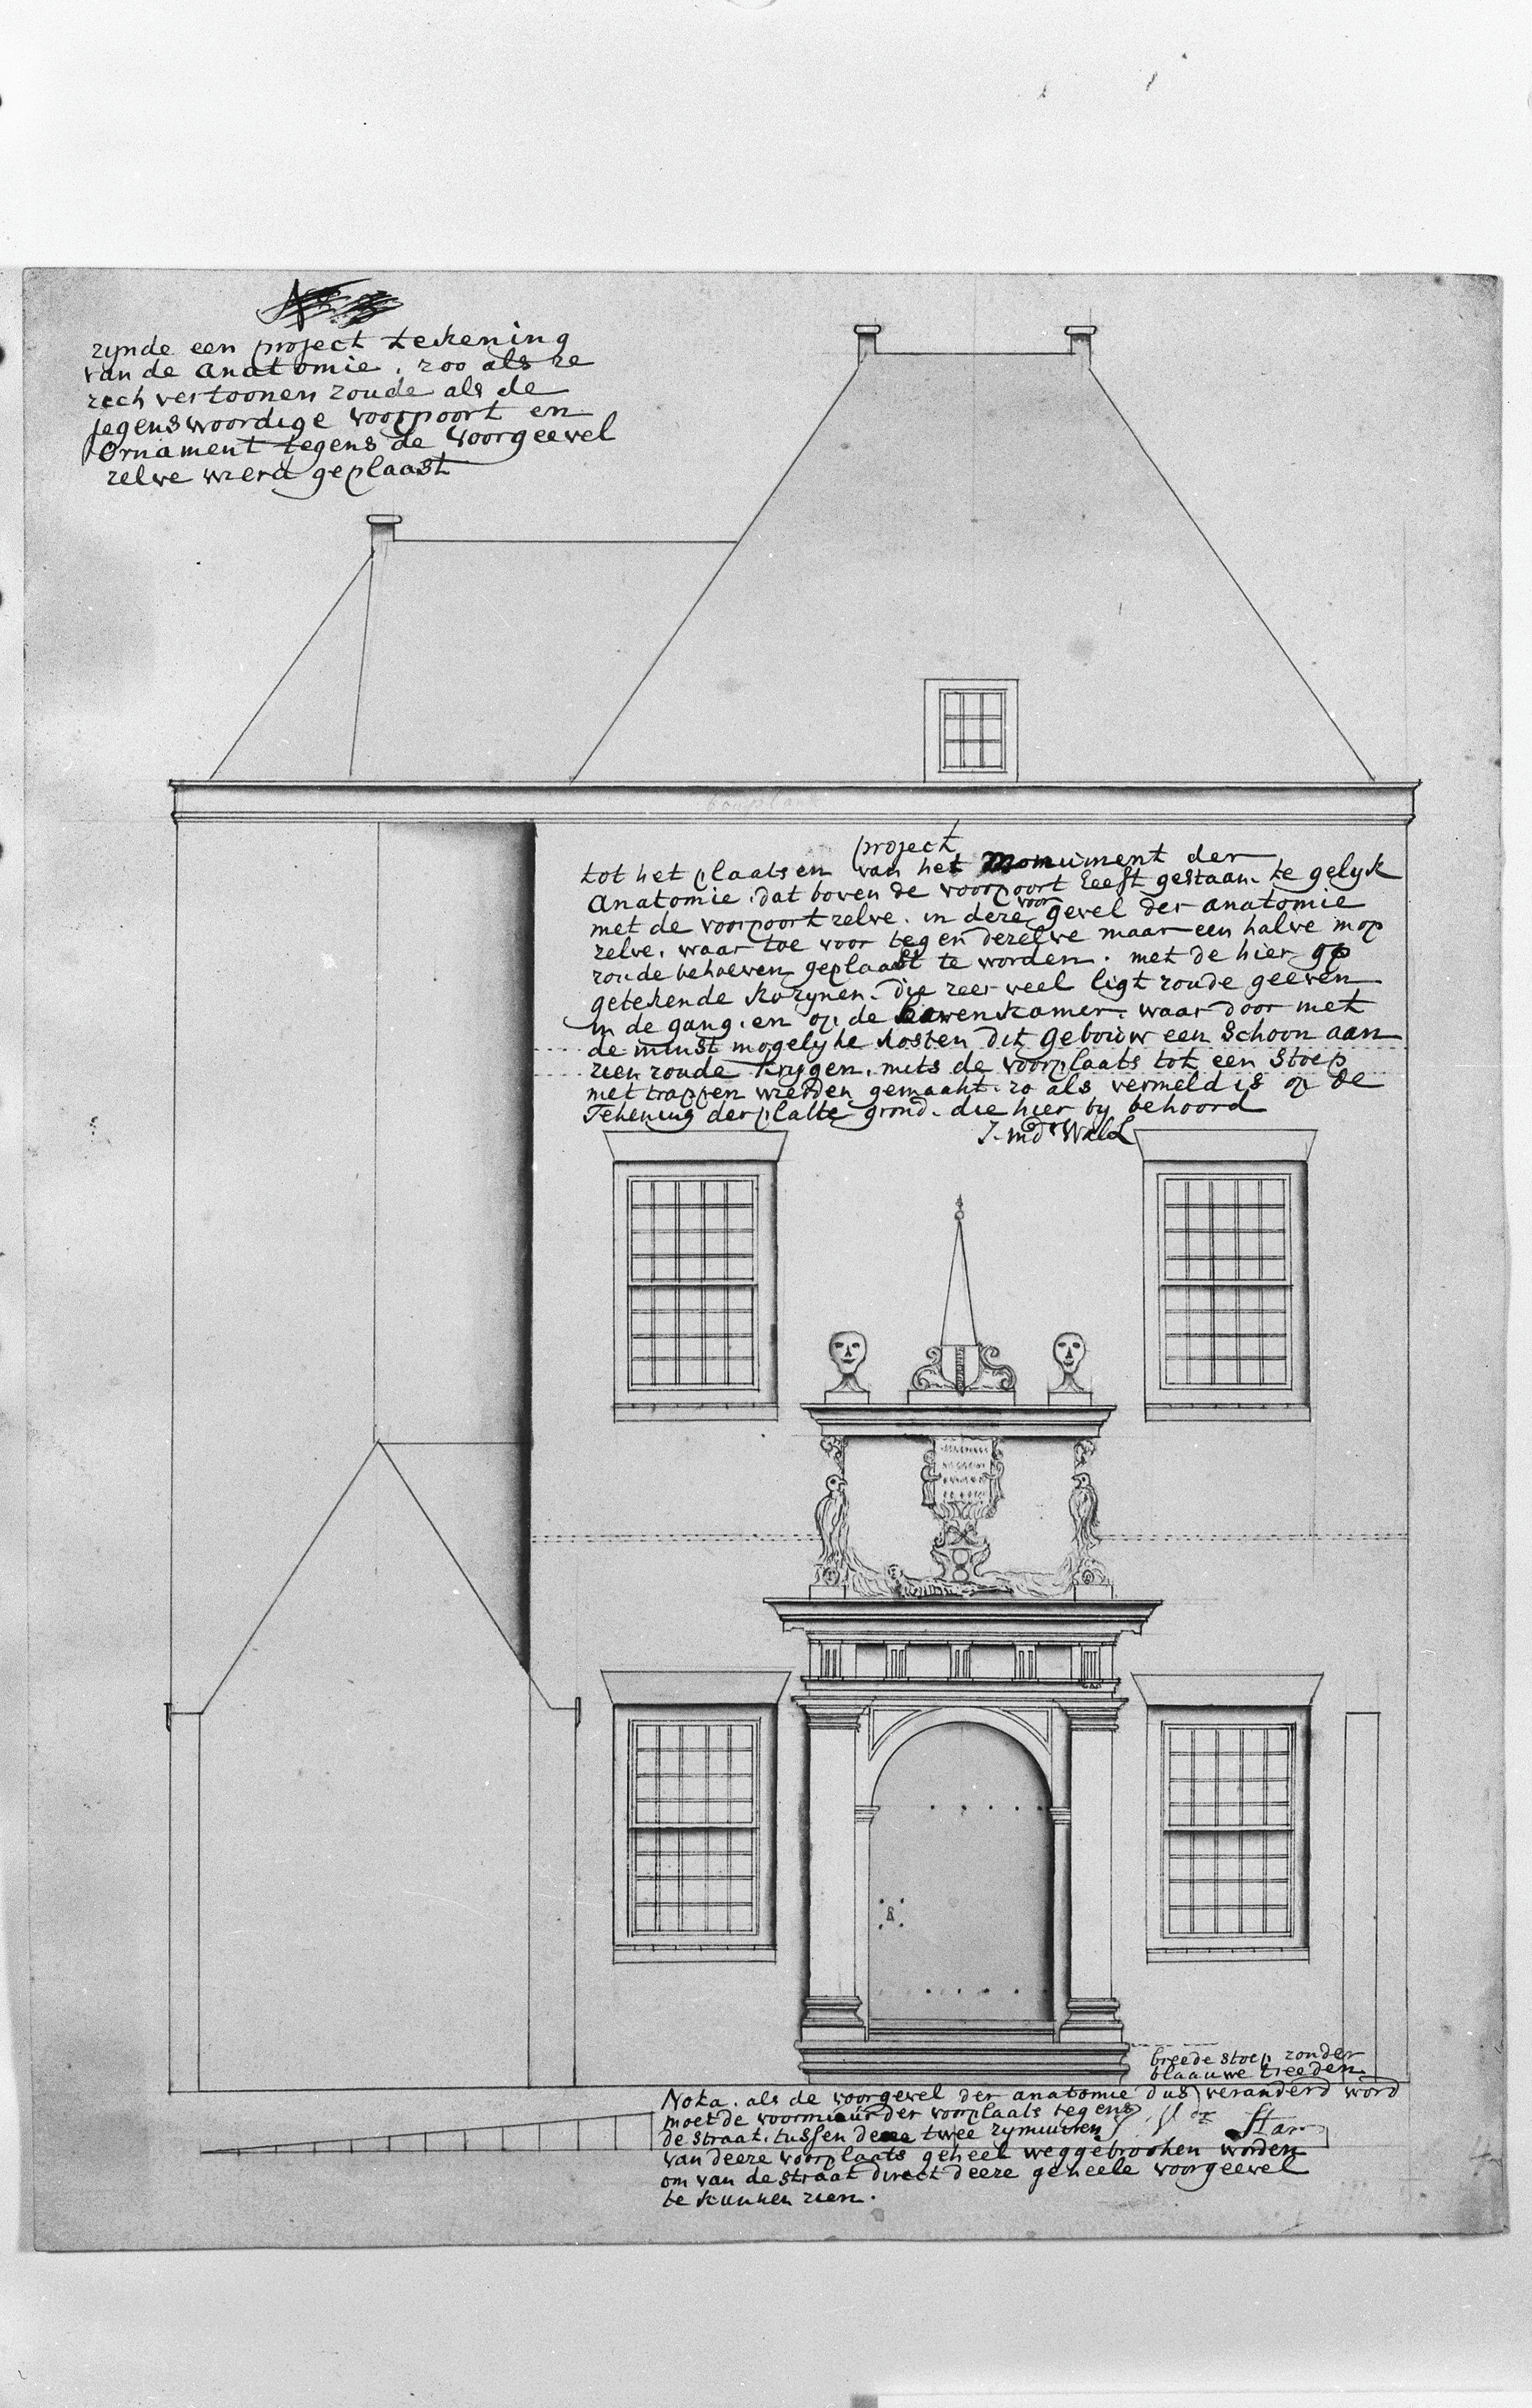 zynde een project tekening
van de anatomie. zoo als ze
zech vertoonen zoude als de
jegenswoordige voorpoort en
Ornament tegens de voorgeevel
zelve wierd geplaast
project
tot het plaatsen van het Monument der
anatomie. dat boven de voorpoort heeft gestaan. te gelyk
met de voorpoort zelve. in deze voor gevel der anatomie
zelve. waar toe voor tegen dezelve maar een halve mop
zoude behoeven geplaast te worden. met de hier op
getekende kozynen. die zeer veel ligt zoude geeven
in de gang. en op de bovenkamer. waar door met
de minst mogelyke kosten dit gebouw een schoon aan
zien zoude krygen. mits de voorplaats tot een stoep
met trappen wierden gemaakt. zo als vermeld is op de
Tekening der platte grond. die hier by behoord
breede stoep zonder
blaauwe treeden
Nota. als de voorgevel der anatomie dus veranderd word
moet de voormuur der voorplaats tegens
de straat. tussen deze twee zymuuren
van deeze voorplaats geheel weggebrooken worden
om van de straat direct deeze geheele voorgeevel
te kunnen zien.